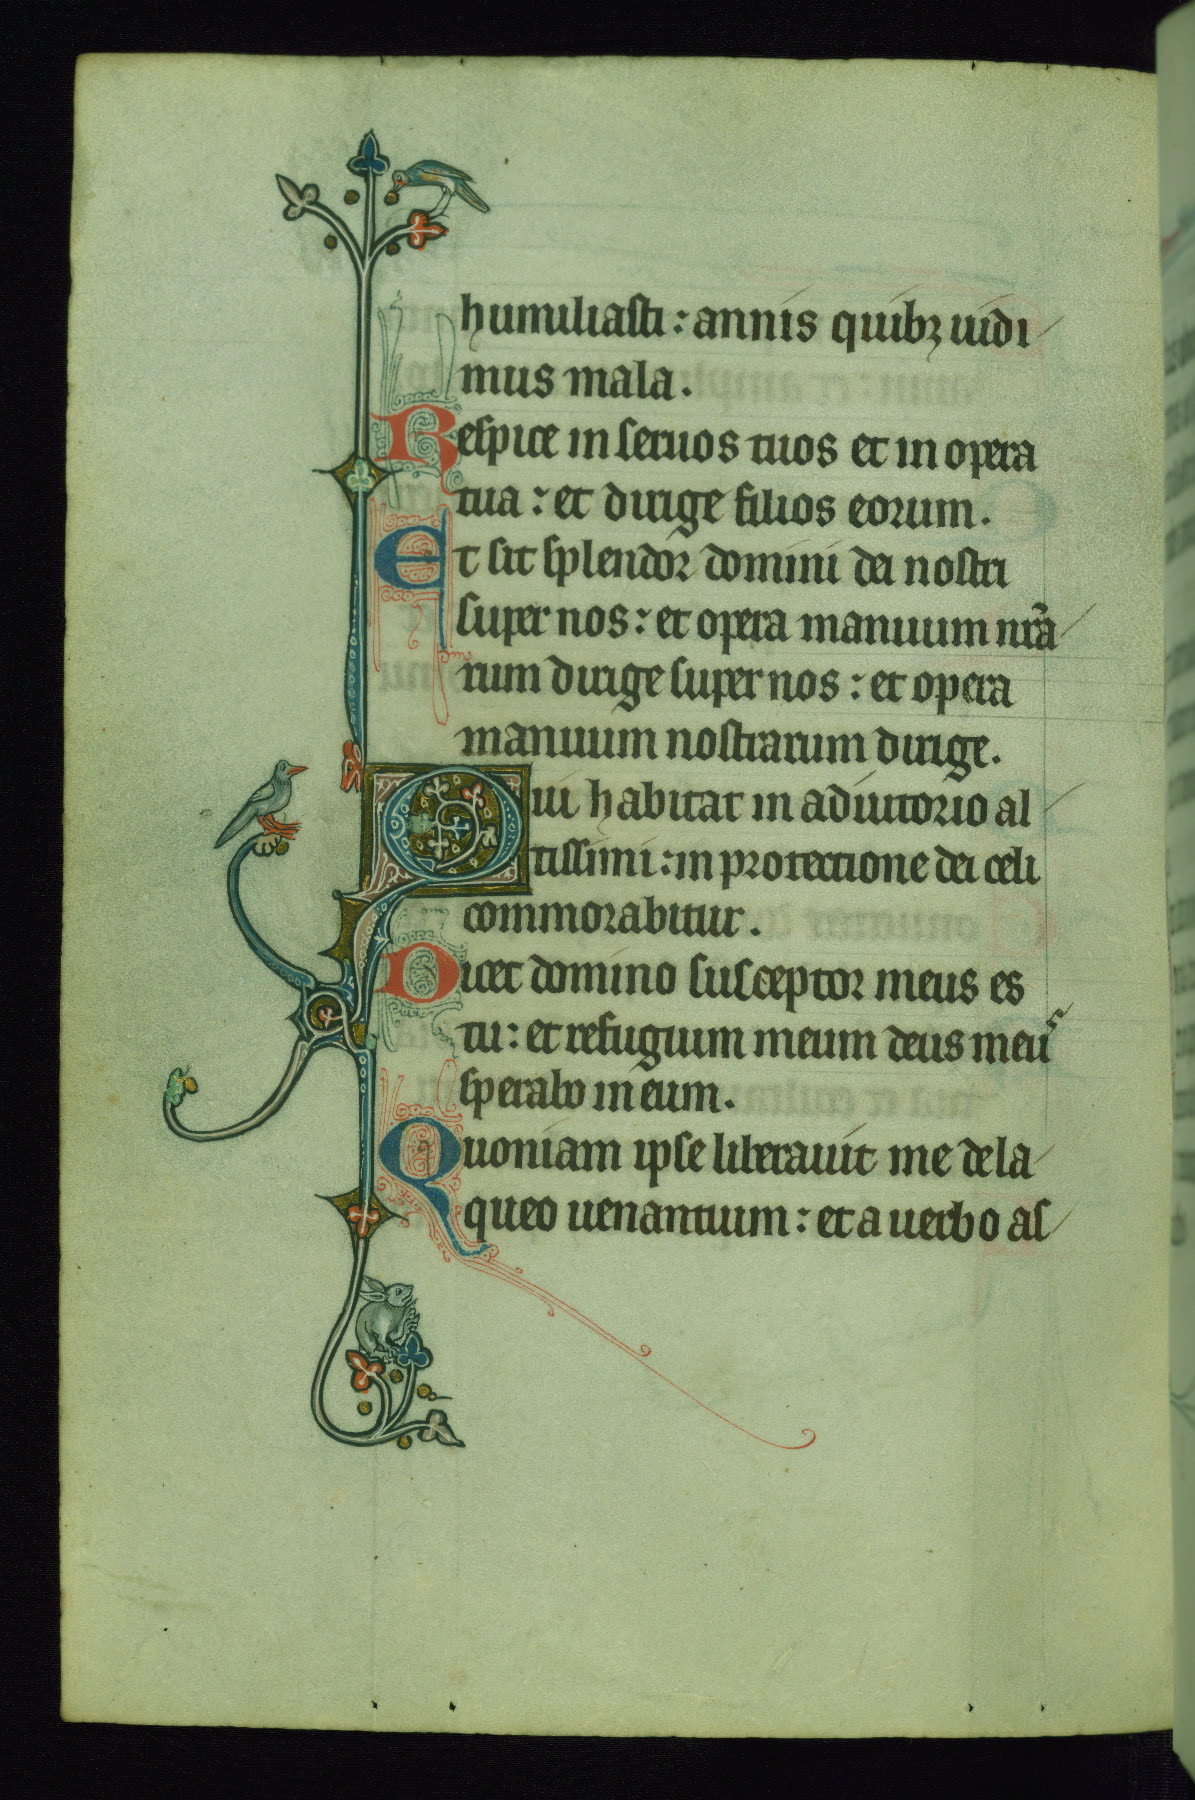 humiliasti : annis quibꝫ uidi
mus mala.
Respice in seruos tuos et in opera
tua : et dirige filios eorum.
Et sit splendor domini dei nostri
super nos : et opera manuum nr̄a
rum dirige super nos : et opera
manuum nostrarum dirige.
Qui habitat in adiutorio al
tissimi : in protectione dei celi
commorabitur.
Dicet domino susceptor meus es
tu : et refugium meum deus meus
sperabo in eum.
Quoniam ipse liberauit me de la
queo uenantium : et a uerbo as